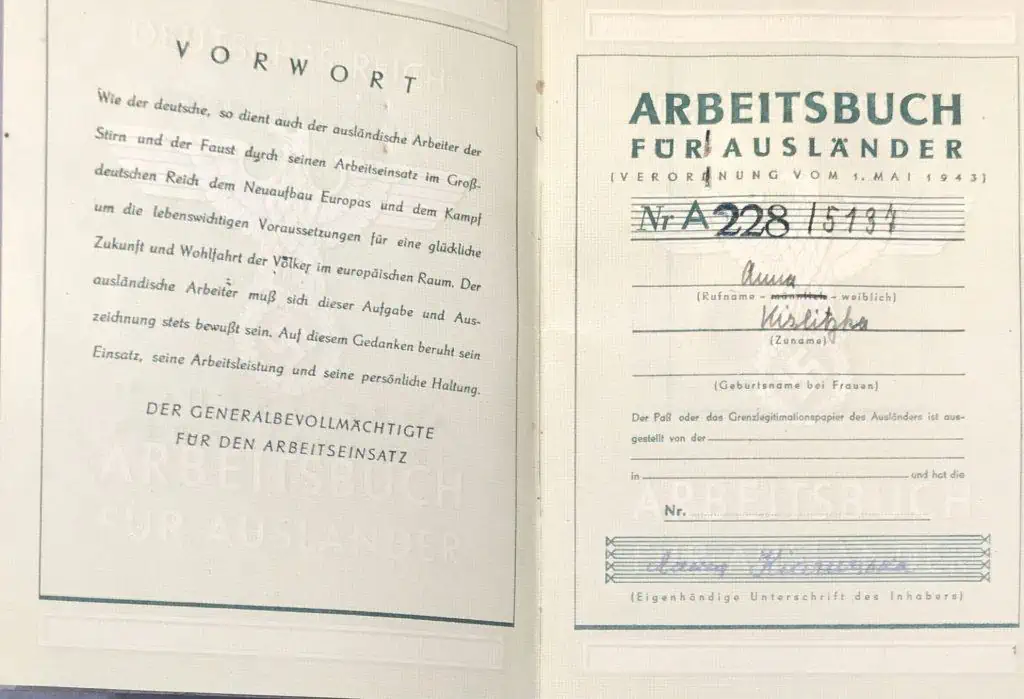 VORWORT
Wie der deutsche, so dient auch der ausländische Arbeiter der
Stirn und der Faust durch seinen Arbeitseinsatz im Groß-
deutschen Reich dem Neuaufbau Europas und dem Kampf
um die lebenswichtigen Voraussetzungen für eine glückliche
Zukunft und Wohlfahrt der Völker im europäischen Raum. Der
ausländische Arbeiter muß sich dieser Aufgabe und Aus-
zeichnung stets bewußt sein. Auf diesem Gedanken beruht sein
Einsatz, seine Arbeitsleistung und seine persönliche Haltung.
DER GENERALBEVOLLMÄCHTIGTE
FÜR DEN ARBEITSEINSATZ
ARBEITSBUCH
FÜR AUSLÄNDER
ARBEITSBUCH
FÜR AUSLÄNDER
(VERORDNUNG VOM 1. MAI 1943)
Nr A 228 / 5137
Anna
(Rufname - männlich - weiblich)
Kislitzka
(Zuname)
(Geburtsname bei Frauen)
Der Paß oder das Grenzlegitimationspapier des Ausländers ist aus-
gestellt von der
in und hat die
ARBEITSBUCH
Nr.
(Eigenhändige Unterschrift des Inhabers)
1